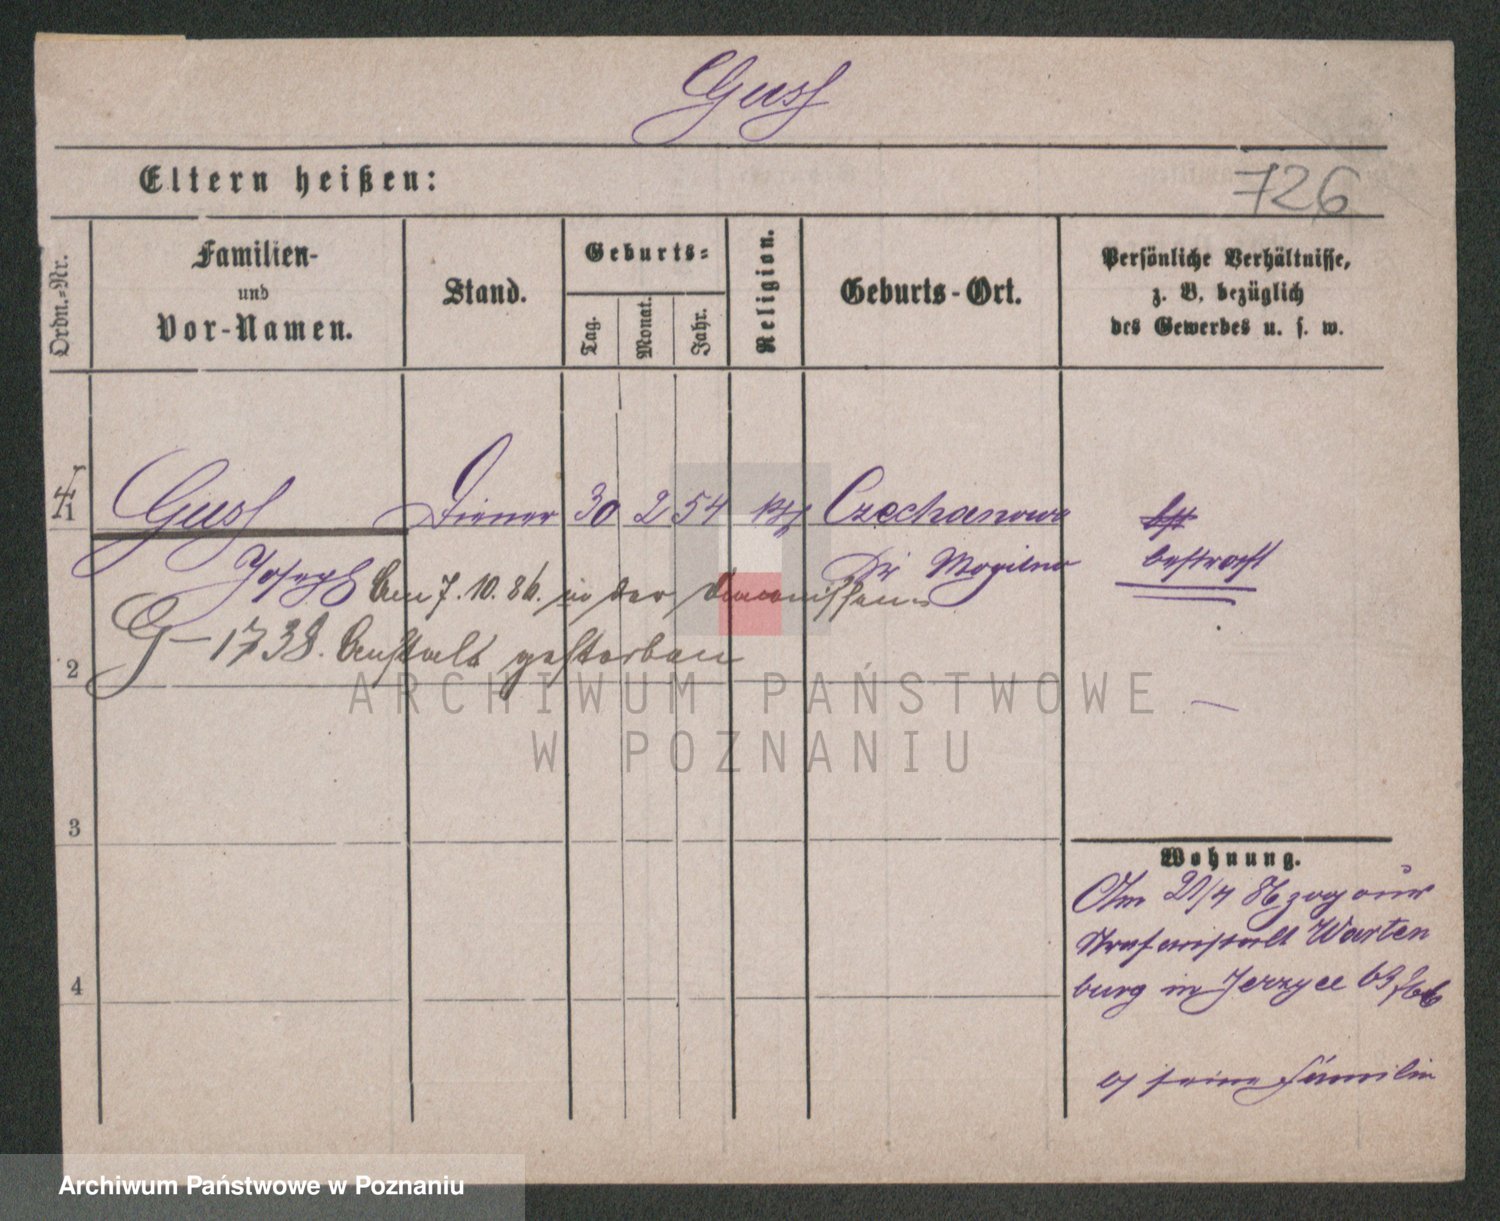 Gusf
Eltern heißen:
726
Ordn.-Nr.
Familien-
und
Vor-Namen.
Stand.
Geburts-
Tag.
Monat.
Jahr.
Religion.
Geburts-Ort.
Persönliche Verhältnisse,
z. B. bezüglich
des Gewerbes u. s. w.
1
Gusf
Diener
30 2 54
kth
Czechanowo
Kr Mogilno
bestraft
Joseph
Am 7. 10. 86. in der
G-1738. Anstalt gestorben
2
3
4
Wohnung.
Am 21/4 86 zog aus
Strafanstalt Warten
burg in Jerzyce 63
seine Familie
ARCHIWUM PAŃSTWOWE
W POZNANIU
Archiwum Państwowe w Poznaniu